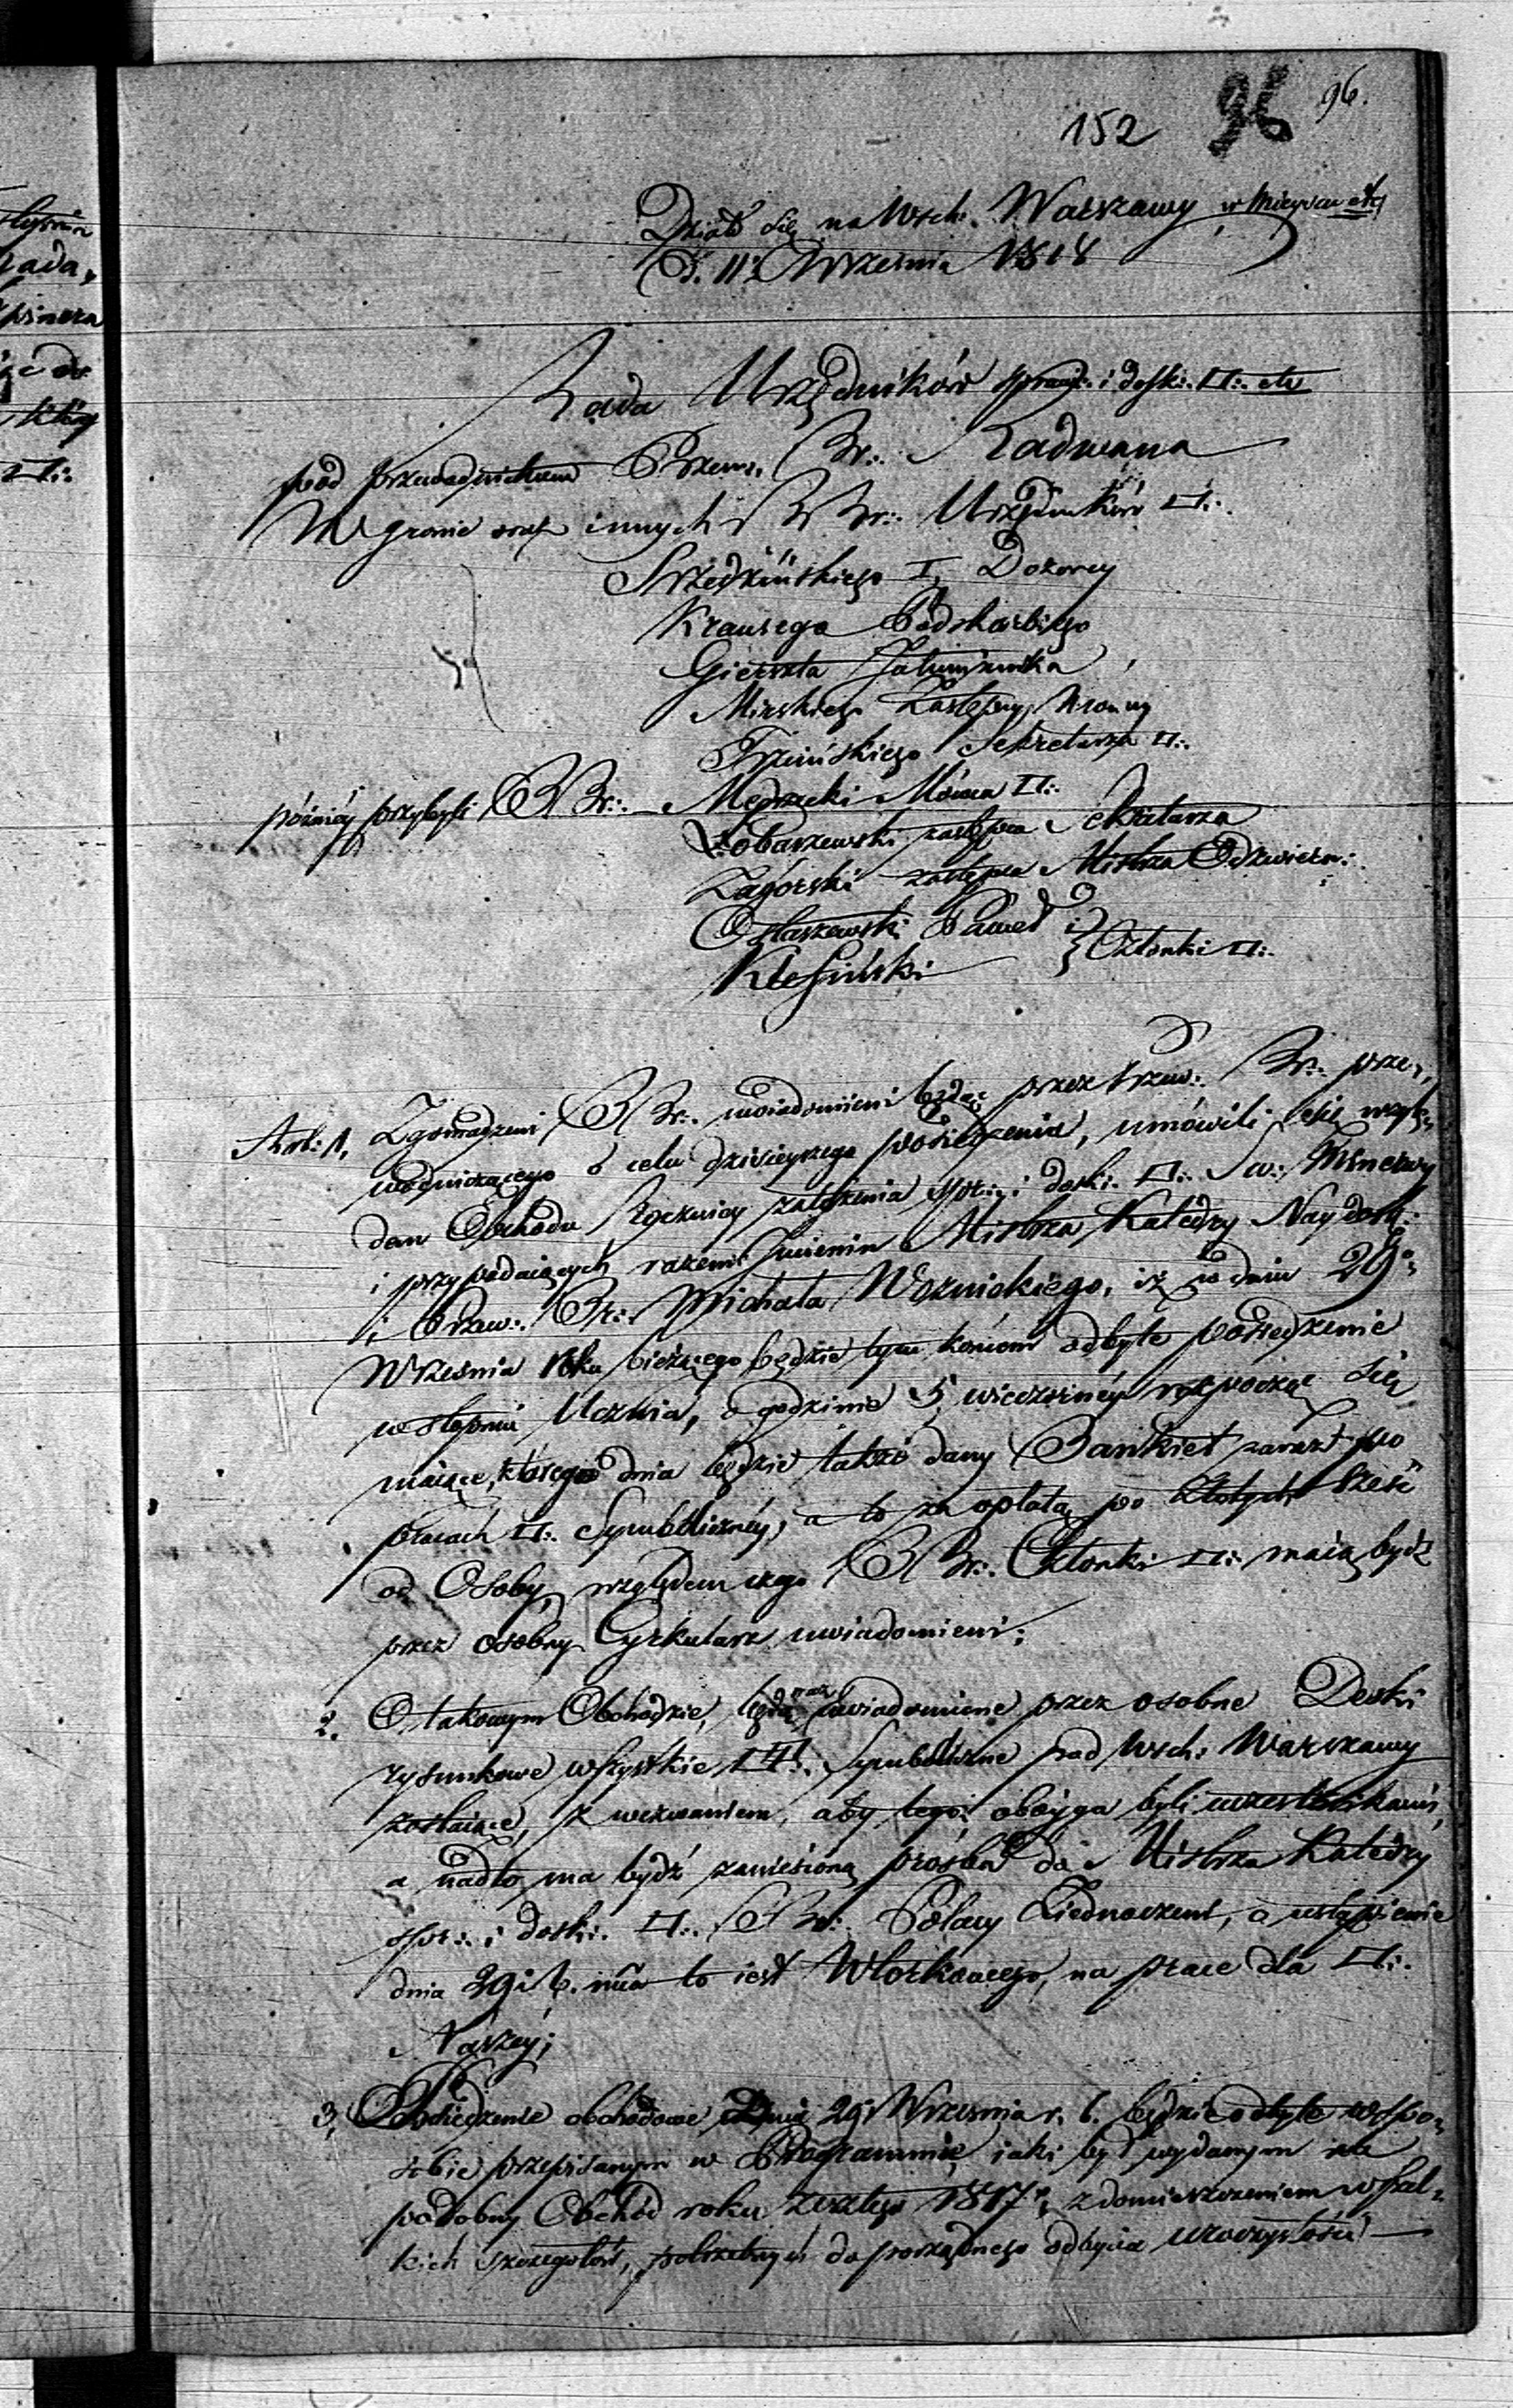 96.
152 96
Działo się na Wsch: Warszawy w Mieyscu etc
D. 11. Września 1818
Rada Urzędników spraw: i dosk: □: etc
pod przewodnictwem Przew. Br: Radwana
W gronie oraz innych BBr: Urzędników □:
Strzedzińskiego I, Dozorcy
Krausego Podskarbiego
Gierszta Jałmużnika
Mirskiego Zastępcy Mowcy
Trzcińskiego Sekretarza □:
później przybyli BBr: Mędrzecki Mówca □:
Łobarzewski zastępca Sekretarza
Zagórski zastępca Mistrza Odźwiern:
Ostaszewski Paweł i
Klesiński } Członki □:
Artk: 1, Zgromadzeni BBr: uwiadomieni będąc przez Przew: Br: prze„
wodniczącego o celu dzisieyszego posiedzenia, umówili się wzglę„
dem Obchodu Rocznicy założenia spr: i dosk: □: Św: Minerwy
i przypadaiących razem Imienin Mistrza Katedry Naydosk:
i Przew: Br: Michała Woźnickiego, iż w dniu 29:
Września roku bieżącego będzie tym końcem odbyte posiedzenie
w stopniu Ucznia, o godzinie 5, wieczornéy rozpocząć się
maiące, którego dnia będzie także dany Bankiet zaraz po
pracach □: Symboliczney, a to za opłatą po Złotych sześć
od Osoby, względem czego BBr: Członki □: maią bydź
przez osobny Cyrkularz uwiadomieni;
2. O takowym Obchodzie, będą oraz uwiadomione przez osobne Deski
rysunkowe wszystkie □□: Symboliczne pod Wsch: Warszawy
zostaiące, z wezwaniem, aby tegoż obóyga byli uczestnikami,
a nadto ma bydź zaniesioną prośba do Mistrza Katedry
spr: i dosk: □: Br: Polacy Ziednoczeni, o ustąpienie
dnia 29. b. m. to iest Wtorkowego, na prace dla □:
Naszey;
3, Posiedzenie obchodowe Dnia 29 Września r. b. będzie odbyte w spo„
sobie przepisanym w Programmie, iaki był wydanym na
podobny Obchód roku zeszłego 1817., z domieszczeniem wszel„
kich szczegółów, potrzebnych do porządnego odbycia uroczystości